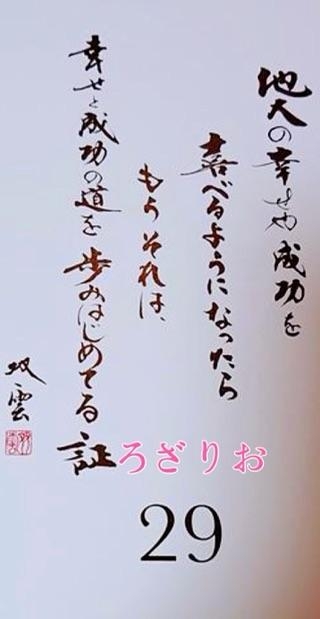 他人の幸せや成功を
喜べるようになったら
もうそれは、
幸せと成功の道を歩みはじめてる証
攻雲
ろざりお
29